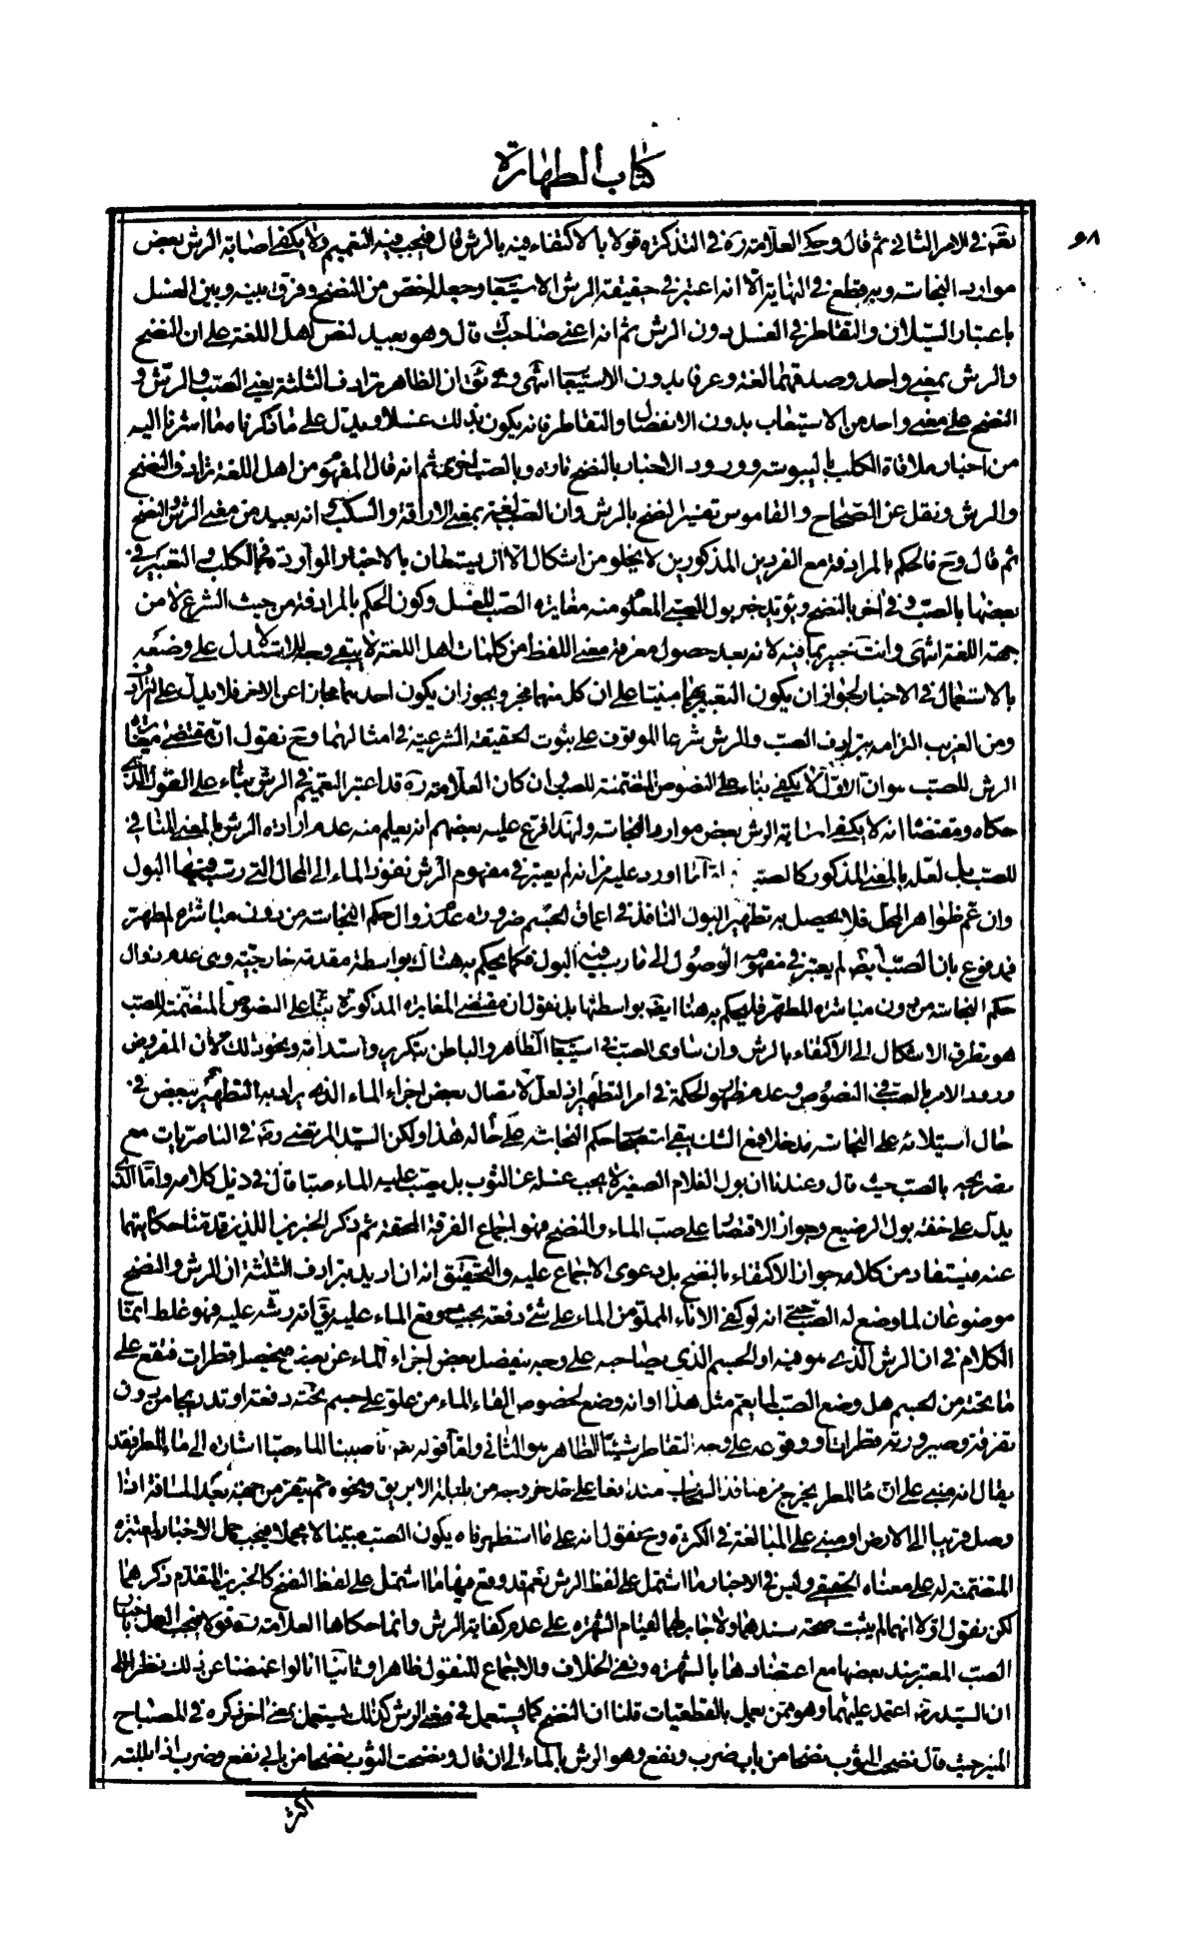 كتاب الطهارة
في الامر الثاني ثم قال وحكى العلامة ره في التذكرة قولا بالاكتفاء فيه بالرش قال فيجب فيه التعميم ولا يكفي اصابة الرش بعض
موارد النجاسة وبه قطع في النهاية الا انه اعتبر في حقيقة الرش الاستيعاب وجعله اخص من النضح وفرق بينه وبين الغسل
باعتبار السيلان والتقاطر في الغسل دون الرش ثم انه اعني صاحب ك قال وهو بعيد لنص اهل اللغة على ان النضح
والرش بمعنى واحد وصدقهما لغة وعرفا بدون الاستيعاب انتهى وفي ان الظاهر ترادف الثلثة يعني الصب والرش و
النضح على معنى واحد من الاستيعاب بدون الانفصال والتقاطر فانه يكون بذلك غسلا ويدل على ما ذكرناه ما اشرنا اليه
من اخبار ملاقاة الكلب باليبوسة وورود الاخبار بالنضح تارة وبالصب اخرى ثم انه قال المفهوم من اهل اللغة ترادف النضح
والرش ونقل عن الصحاح والقاموس تفسير النضح بالرش وان الصب لغة بمعنى الاراقة والسكب وانه بعيد من معنى الرش والنضح
ثم قال وح فالحكم بالمرادفة مع الفردين المذكورين لا يخلو من اشكال الا ان يستعان بالاخبار الواردة في الكلب والتعبير في
بعضها بالصب وفي اخر بالنضح ويؤيد خبر بول الصبي المعلوم منه مغايرة الصب للغسل وكون الحكم بالمرادفة من حيث الشرع لا من
جهة اللغة انتهى وانت خبير بما فيه لانه بعد حصول معرفة معنى اللفظ من كلمات اهل اللغة لا يبقى وجه للاستدلال على وضعه
بالاستعمال في الاخبار لجواز ان يكون التعبير بهما مبنيا على ان كل منهما مجز ويجوز ان يكون احدهما مجازا عن الاخر فلا يدل على الترادف
ومن الغريب التزامه بترادف الصب والرش شرعا الموقوف على ثبوت الحقيقة الشرعية في امثالهما وح نقول ان مقتضى مغايرة
الرش للصب هو ان الاول لا يكفي بناء على النصوص المتضمنة للصب وان كان العلامة ره قد اعتبر التعميم في الرش بناء على القول الذي
حكاه ومقتضاه انه لا يكفي اصابة الرش بعض موارد النجاسة ولهذا فرع عليه بعضهم انه يعلم منه عدم ارادة الرش بالمعنى المنافي
للصب بل لعله بالمعنى المذكور كالصب اما اورد عليه من انه لم يعتبر في مفهوم الرش نفوذ الماء الى المحال التي رسب فيها البول
وان عم ظواهر المحل فلا يحصل به تطهير البول النافذ في اعماق الجسم ضرورة عدم زوال حكم النجاسة من دون مباشرة المطهر
فمدفوع بان الصب ايضا لم يعتبر في مفهومه الوصول الى ما رسب فيه البول فكما يحكم به هناك بواسطة مقدمة خارجية وهي عدم زوال
حكم النجاسة من دون مباشرة المطهر فليحكم به هنا ايضا بواسطتها بل نقول ان مقتضى المغايرة المذكورة بناء على النصوص المتضمنة للصب
هو تطرق الاشكال الى الاكتفاء بالرش وان ساوى الصب في استيعاب الظاهر والباطن بتكريره واستدامته ونحو ذلك لان المفروض
ورود الامر بالصب في النصوص وعدم ظهور الحكمة في امر التطهير اذ لعل لاتصال بعض اجزاء الماء الذي يراد به التطهير ببعض في
حال استيلائه على النجاسة مدخلا فمع الشك يبقى استصحاب حكم النجاسة على حاله هذا ولكن السيد المرتضى ره في الناصريات مع
تصريحه بالصب حيث قال وعندنا ان بول الغلام الصغير لا يجب غسله عن الثوب بل يصب عليه الماء صبا قال في ذيل كلامه واما الذي
يدل على خفة بول الرضيع وجواز الاقتصار على صب الماء والنضح فهو اجماع الفرقة المحقة ثم ذكر الخبرين اللذين قدمنا حكايتهما
عنه فيستفاد من كلامه جواز الاكتفاء بالنضح بل دعوى الاجماع عليه والتحقيق انه ان اريد بترادف الثلثة ان الرش والنضح
موضوعان لما وضع له الصب حتى انه لو كفي الاناء المملو من الماء على شئ دفعة بحيث وقع الماء عليه ق انه رشه عليه فهو غلط انما
الكلام في ان الرش الذي هو فيه او الجسم الذي يصاحبه على وجه ينفصل بعض اجزاء الماء عن بعض فيحصل قطرات فتقع على
ما تحته من الجسم هل وضع الصب لما يعم مثل هذا او انه وضع لخصوص القاء الماء من علو على جسم تحته دفعة او تدريجا من دون
تفرقة وصيرورته قطرات ووقوعه على وجه التقاطر شيئا الظاهر هو الثاني واما قوله تعالى انا صببنا الماء صبا اشارة الى ماء المطر فقد
يقال انه مبني على ان ماء المطر يخرج من منافذ السحاب متدافعا على حد خروجه من بلبلة الابريق ونحوه ثم يتفرق من جهة بعد المسافة اذا
وصل قريبا الى الارض او مبني على المبالغة في الكثرة وح نقول انه على ما استظهرناه يكون الصب مبينا لا مجملا فيجب حمل الاخبار المعتبرة
المتضمنة له على معناه الحقيقي وليس في الاخبار ما اشتمل على لفظ الرش نعم قد وقع فيها ما اشتمل على لفظ النضح كالخبرين المتقدم ذكرهما
لكن نقول اولا انهما لم يثبت صحة سندهما ولا جابر لهما لقيام الشهرة على عدم كفاية الرش وانما حكاها العلامة ره قولا فيجب العمل باخبار
الصب المعتبر سند بعضها مع اعتضادها بالشهرة ونفي الخلاف والاجماع المنقول ظاهرا وثانيا انا لو اغمضنا عن ذلك نظرا الى
ان السيد ره اعتمد عليهما وهو ممن يعمل بالقطعيات قلنا ان النضح كما يستعمل في معنى الرش كذلك يستعمل بمعنى اخر ذكره في المصباح
المنير حيث قال نضحت الثوب نضحا من باب ضرب ونفع وهو الرش بالماء الى ان قال ونضحت الثوب نضحا من بابي نفع وضرب اذا بللته
اكثر